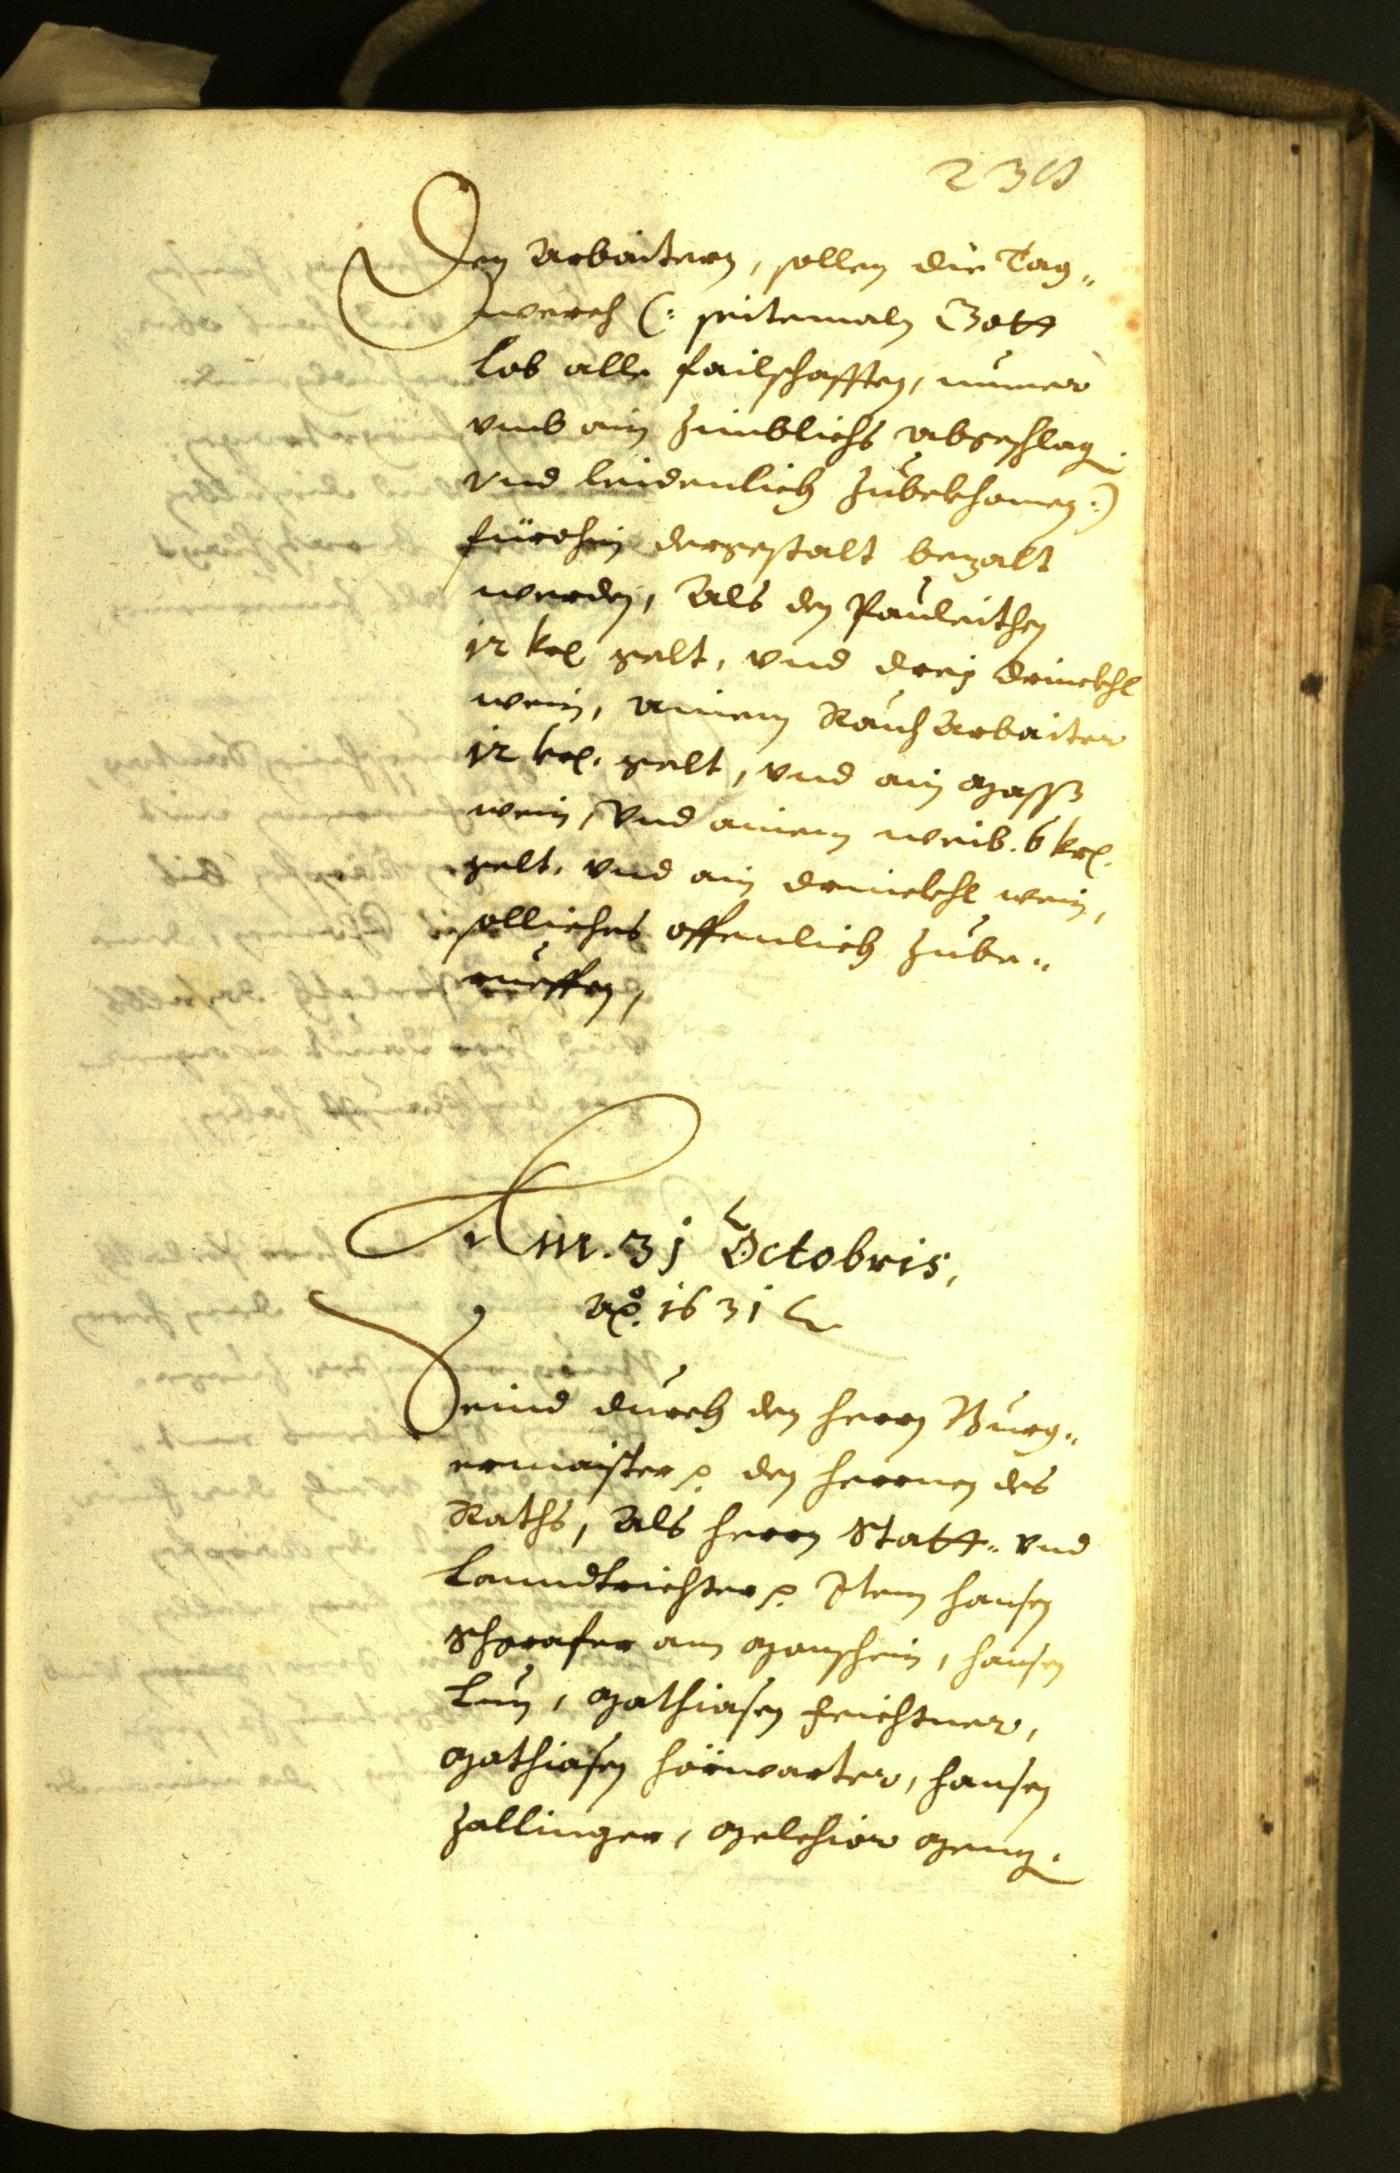 Den Arbaitern, sollen die Tag„
werch (: seitemaln Gott
Lob alle failschafften, numer
vmb ain zimblichs abgeschlag.
vnd leidenlich zubekhomen :)
fürohin dergestalt bezalt
werden, Als den Pauleithen
12 krl gelt, vnd drey drinckhl
wein, ainem Rauch Arbaiter
12 krl. gelt, vnd ain Mass
wein, vnd ainem weib. 6 krl.
gelt, vnd ain drinckhl wein,
solliches offenlich zube„
rueffen,
Am. 31 Octobris,
Aõ. 1631
Seind durch den herrn Burg„
ermaister den herrnen des
Raths, Als herrn Statt„ vnd
Lanndtrichter Item Hansen
am Manschein, Hansen
Lun, Mathiasen Feichtner,
Mathiasen Hörwarter, Hansen
Zallinger, Melchior